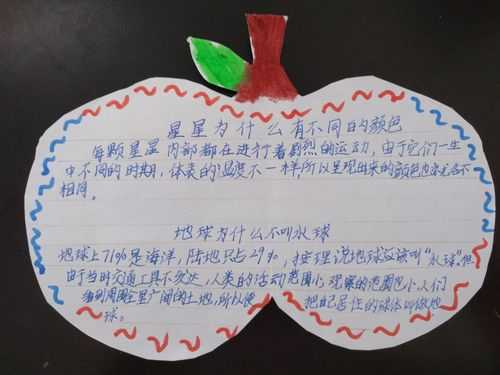 星星为什么有不同的颜色
每颗星星内部都在进行着剧烈的运动，由于它们一生
中不同的时期，体表的温度不一样所以呈现出来的颜色也各不
相同。
地球为什么不叫水球
地球上71%是海洋，陆地只占29%，按理说地球应该叫“水球”。但
由于当时交通工具不发达，人类的活动范围小观察的范围也小人们
看到周围全是广阔的土地，所以便 把自己居住的球体叫做地
球。